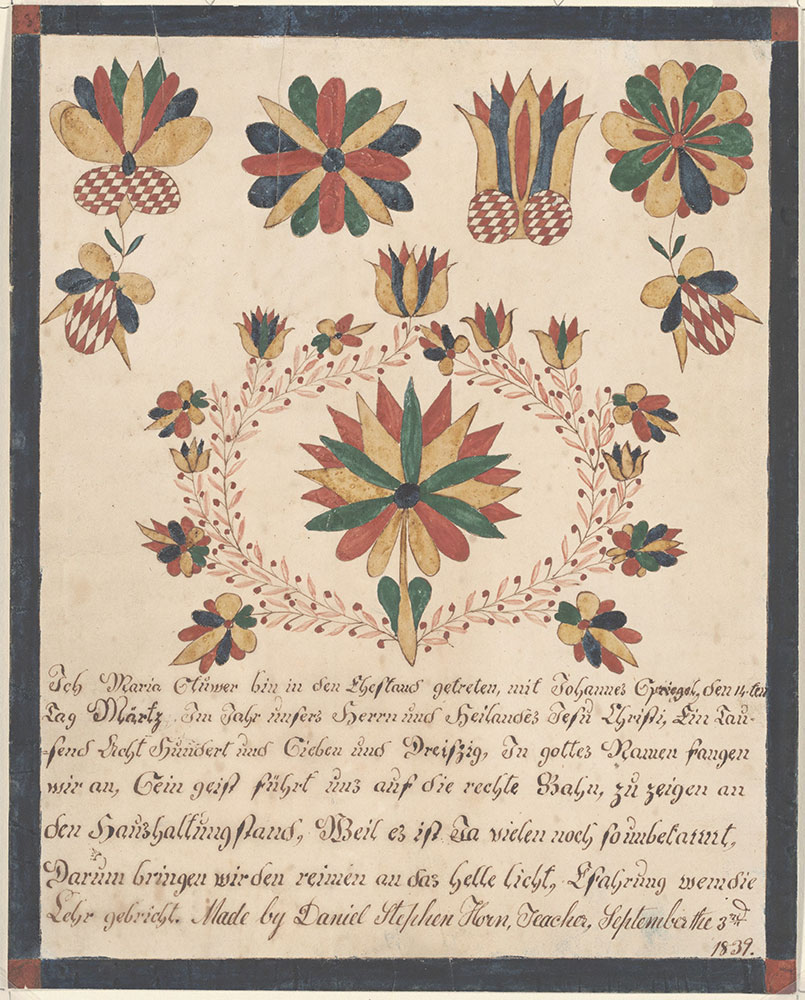 Ich Maria Stuwer bin in den Ehestand getreten, mit Johannes Spriegel, den 14-ten
Tag Märtz. Im Jahr unsers Herrn und Heilandes Jesu Christi, Ein Tau-
=send Acht Hundert und Sieben und Dreiszig, In gottes Namen fangen
wir an, Sein geist führt uns auf die rechte Bahn, zu zeigen an
den Haushaltungstand, Weil es ist Ja vielen noch so unbekannt,
Darum bringen wir den reimen an das helle licht, Efahrung wem die
Lehr gebricht. Made by Daniel Stephen Horn, Teacher, September the 3rd
1839.